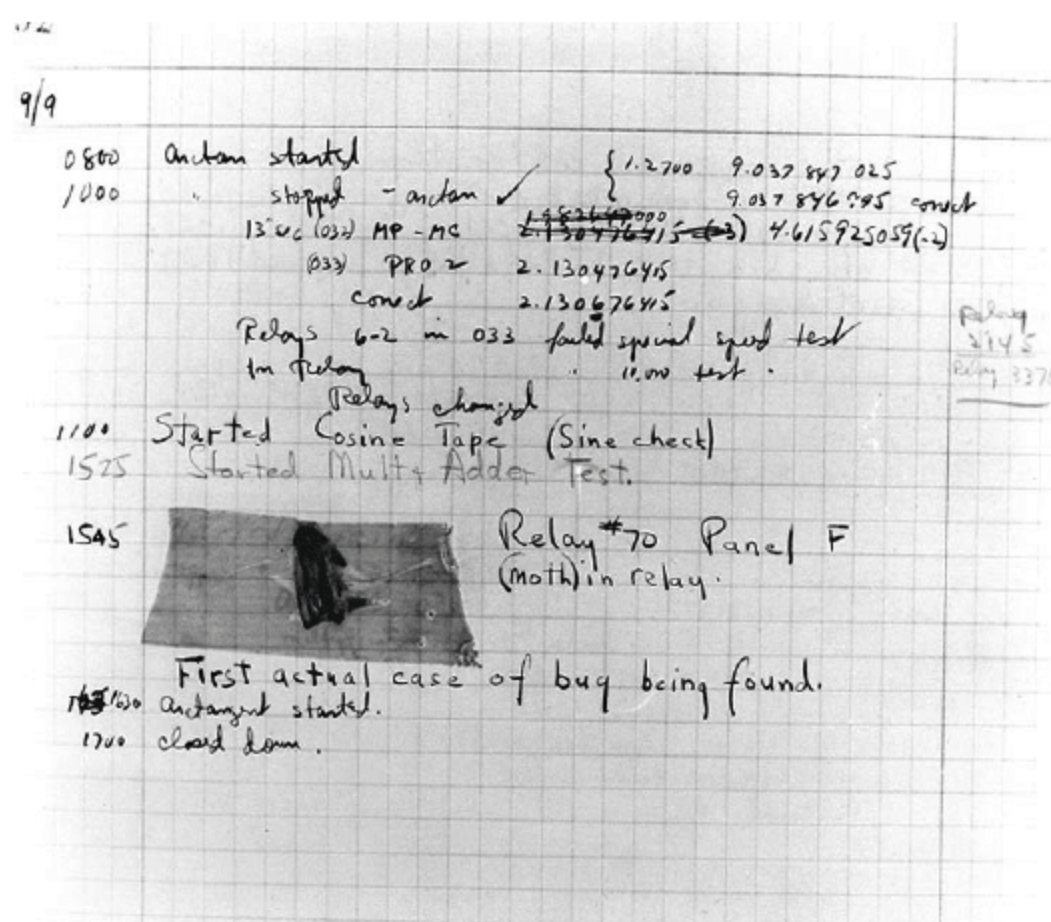 9/9
0800 Antan started { 1.2700 9.037 847 025
1000 " stopped - antan ✓ 9.037 846 995 conect
13"uc (032) MP - MC 2.130476415 (-3) 4.615925059(-2)
(033) PRO 2 2.130476415
conect 2.130676415
Relays 6-2 in 033 failed special speed test
In Relay " 10,000 test .
Relays changed
Relay
2145
Relay 3370
1100 Started Cosine Tape (Sine check)
1525 Started Mult + Adder Test.
1545 Relay #70 Panel F
(moth) in relay.
First actual case of bug being found.
1630 Antangent started.
1700 closed down .